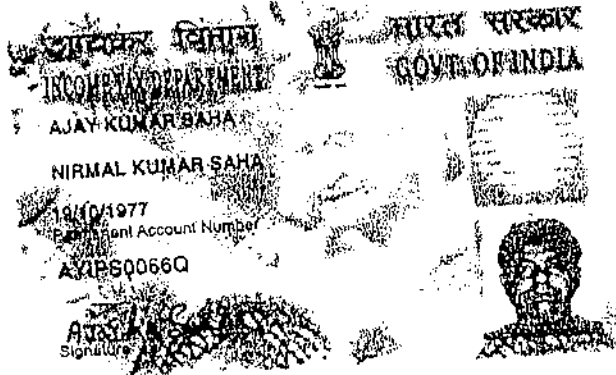 आयकर विभाग
भारत सरकार
INCOME TAX DEPARTMENT
GOVT. OF INDIA
AJAY KUMAR SAHA
NIRMAL KUMAR SAHA
19/10/1977
Permanent Account Number
AYIPS0066Q
Signature